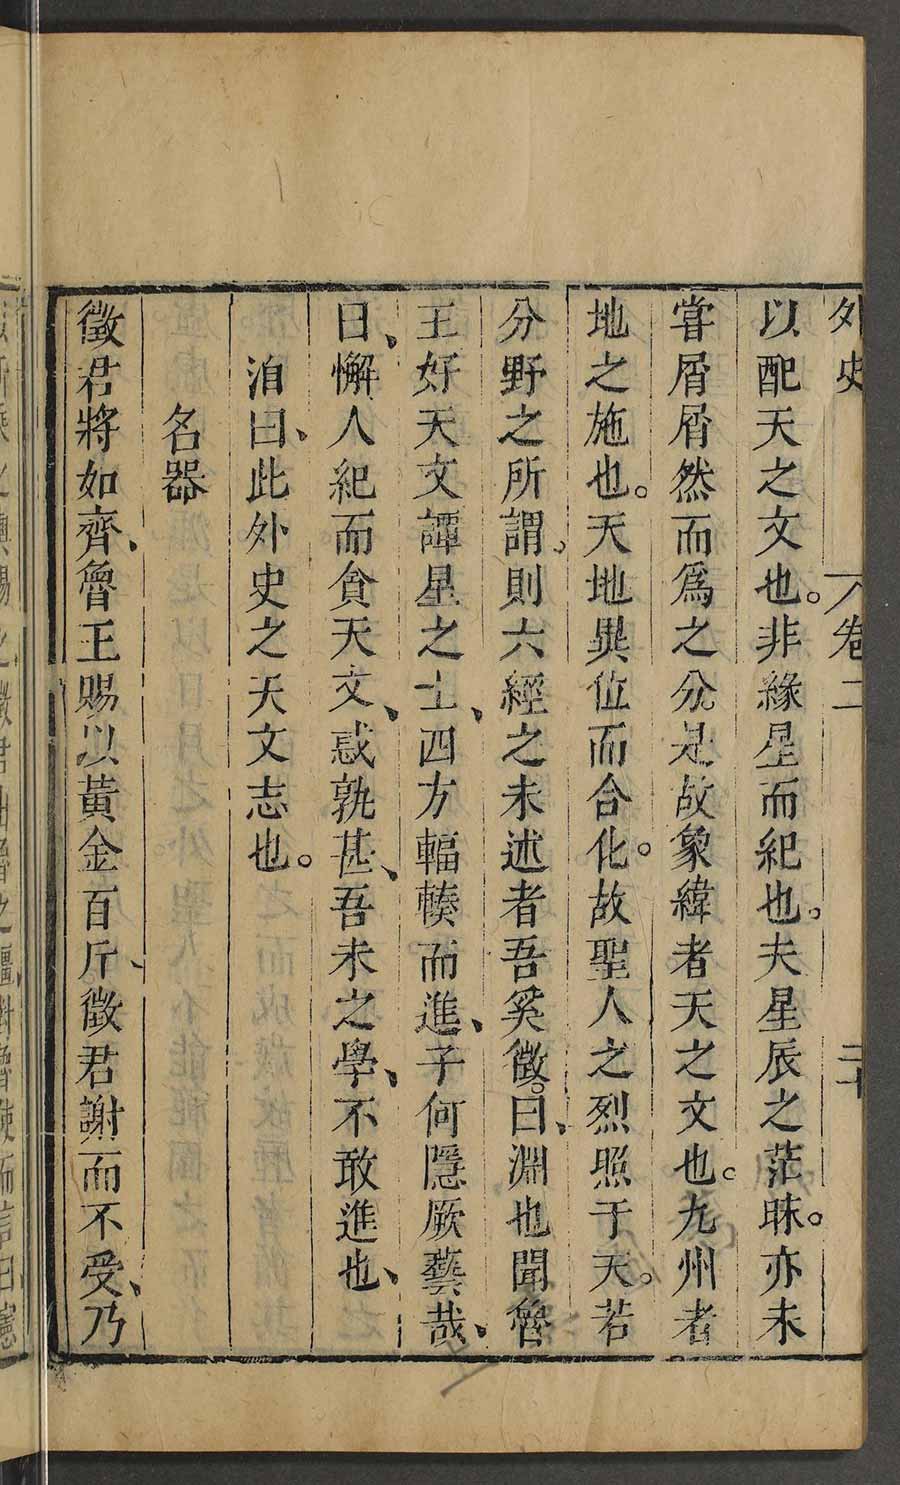 外史 卷二 二十
以配天之文也。非緣星而紀也。夫星辰之茫昧。亦未
嘗屑屑然而爲之分。是故象緯者天之文也。九州者
地之施也。天地異位而合化。故聖人之烈照于天。若
分野之所謂。則六經之未述者吾奚徵。曰、淵也聞魯
王好天文譚星之士、四方輻輳而進、子何隱厥藝哉、
曰、懈人紀而貪天文、惑孰甚、吾未之學、不敢進也、
洎曰、此外史之天文志也。
名器
徵君將如齊、魯王賜以黃金百斤、徵君謝而不受、乃